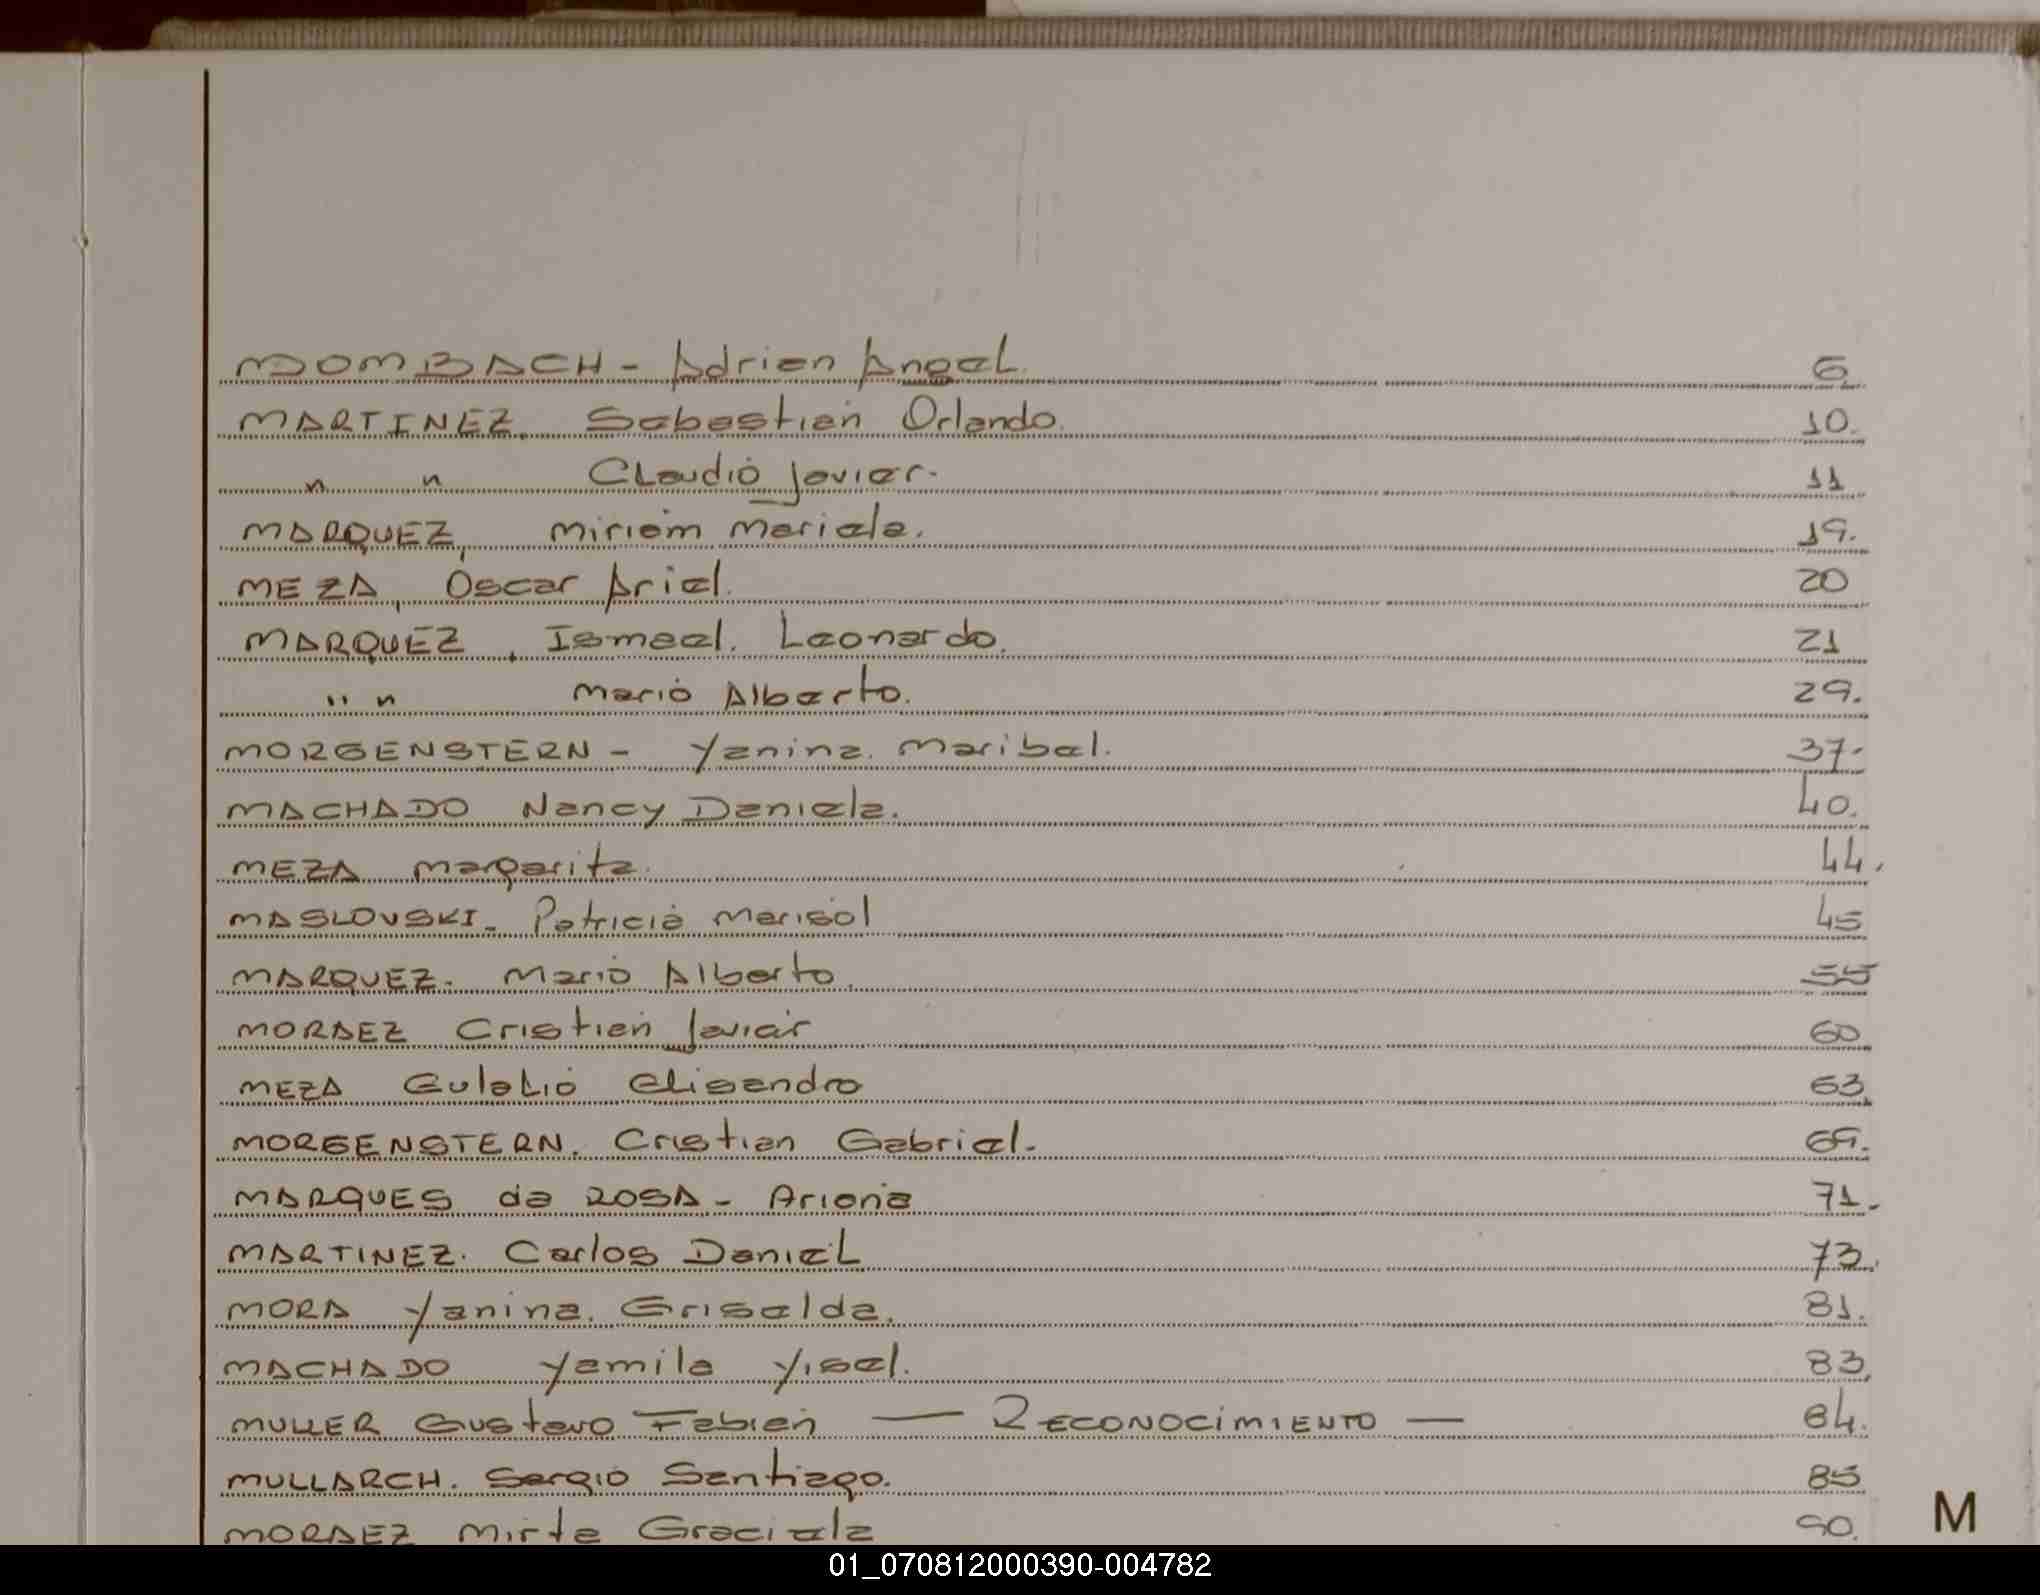 MOMBACH - Adrian Angel. 6
MARTINEZ, Sebastian Orlando. 10.
" " Claudio Javier. 11
MARQUEZ, Miriam Mariela. 19.
MEZA, Oscar Ariel. 20
MARQUEZ, Ismael. Leonardo. 21
" " Mario Alberto. 29.
MORGENSTERN - Yanina. Maribel. 37.
MACHADO Nancy Daniela. 40.
MEZA Margarita. 44.
MASLOVSKI - Patricia Marisol 45
MARQUEZ. Mario Alberto. 55
MORAEZ Cristian Javier 60
MEZA Eulalio Elisandro 63.
MORGENSTERN. Cristian Gabriel. 69.
MARQUES da ROSA - Ariana 71.
MARTINEZ. Carlos Daniel 73.
MORA Yanina. Griselda. 81.
MACHADO Yamila Yisel. 83.
MULLER Gustavo Fabian — RECONOCIMIENTO — 84.
MULLARCH. Sergio Santiago. 85
MORAEZ Mirta Graciela 90.
M
01_070812000390-004782